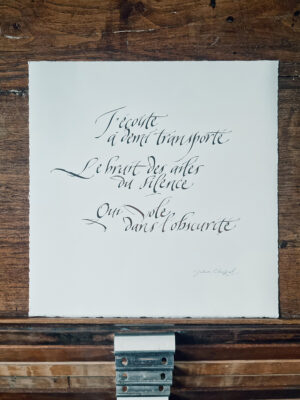 J'écoute
à demi transporté
Le bruit des ailes
du silence
Qui vole
dans l'obscurité